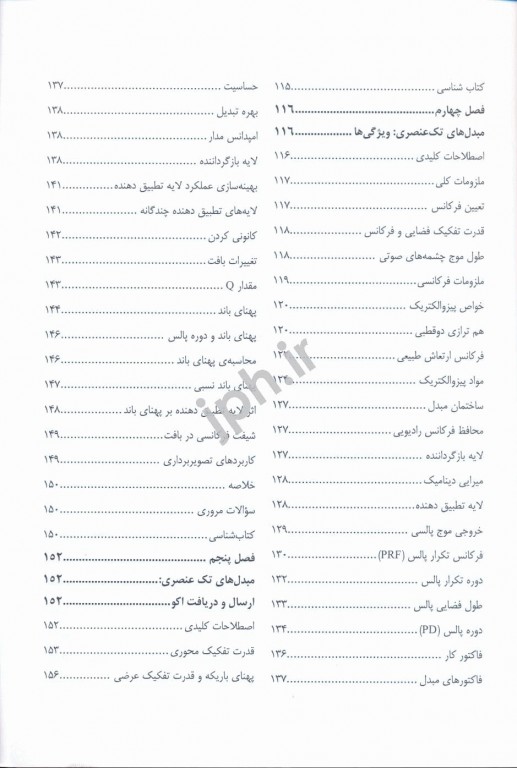 کتاب شناسی ........ ۱۱۵
فصل چهارم ........ ۱۱۶
مبدل‌های تک‌عنصری: ویژگی‌ها ........ ۱۱۶
اصطلاحات کلیدی ........ ۱۱۶
ملزومات کلی ........ ۱۱۷
تعیین فرکانس ........ ۱۱۷
قدرت تفکیک فضایی و فرکانس ........ ۱۱۸
طول موج چشمه‌های صوتی ........ ۱۱۸
ملزومات فرکانسی ........ ۱۱۹
خواص پیزوالکتریک ........ ۱۲۰
هم ترازی دوقطبی ........ ۱۲۰
فرکانس ارتعاش طبیعی ........
مواد پیزوالکتریک ........ ۱۲۴
ساختمان مبدل ........ ۱۲۷
محافظ فرکانس رادیویی ........ ۱۲۷
لایه بازگرداننده ........ ۱۲۷
میرایی دینامیک ........ ۱۲۸
لایه تطبیق دهنده ........ ۱۲۸
خروجی موج پالسی ........ ۱۲۹
فرکانس تکرار پالس (PRF) ........ ۱۳۰
دوره تکرار پالس ........ ۱۳۲
طول فضایی پالس ........ ۱۳۳
دوره پالس (PD) ........ ۱۳۴
فاکتور کار ........ ۱۳۶
فاکتورهای مبدل ........ ۱۳۷
حساسیت ........ ۱۳۷
بهره تبدیل ........ ۱۳۸
امپدانس مدار ........ ۱۳۸
لایه بازگرداننده ........ ۱۳۸
بهینه‌سازی عملکرد لایه تطبیق دهنده ........ ۱۴۱
لایه‌های تطبیق دهنده چندگانه ........ ۱۴۱
کانونی کردن ........ ۱۴۲
تغییرات بافت ........ ۱۴۳
مقدار Q ........ ۱۴۳
پهنای باند ........ ۱۴۴
پهنای باند و دوره پالس ........ ۱۴۶
محاسبه‌ی پهنای باند ........ ۱۴۶
پهنای باند نسبی ........ ۱۴۷
اثر لایه تطبیق دهنده بر پهنای باند ........ ۱۴۸
شیفت فرکانسی در بافت ........ ۱۴۹
کاربردهای تصویربرداری ........ ۱۴۹
خلاصه ........ ۱۵۰
سؤالات مروری ........ ۱۵۰
کتاب‌شناسی ........ ۱۵۰
فصل پنجم ........ ۱۵۲
مبدل‌های تک عنصری: ........ ۱۵۲
ارسال و دریافت اکو ........ ۱۵۲
اصطلاحات کلیدی ........ ۱۵۲
قدرت تفکیک محوری ........ ۱۵۳
پهنای باریکه و قدرت تفکیک عرضی ........ ۱۵۶
jph.ir